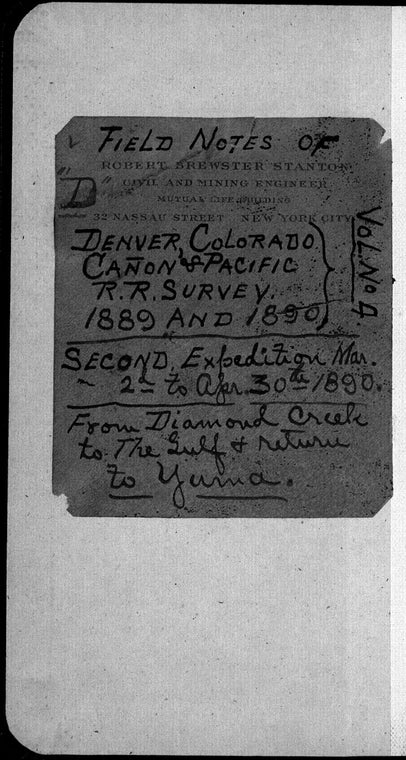 FIELD NOTES OF
ROBERT BREWSTER STANTON
"D"
CIVIL AND MINING ENGINEER
MUTUAL LIFE BUILDING
32 NASSAU STREET NEW YORK CITY
DENVER, COLORADO
CAÑON & PACIFIC
R.R. SURVEY.
1889 AND 1890
VOL. No 4
SECOND, Expedition Mar.
2nd to Apr. 30th 1890.
From Diamond Creek
to The Gulf & return
to Yuma.